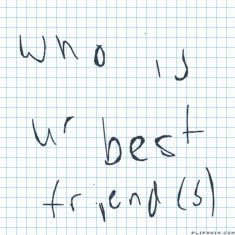 who is
ur best
friend(s)
FLIPANIM.COM